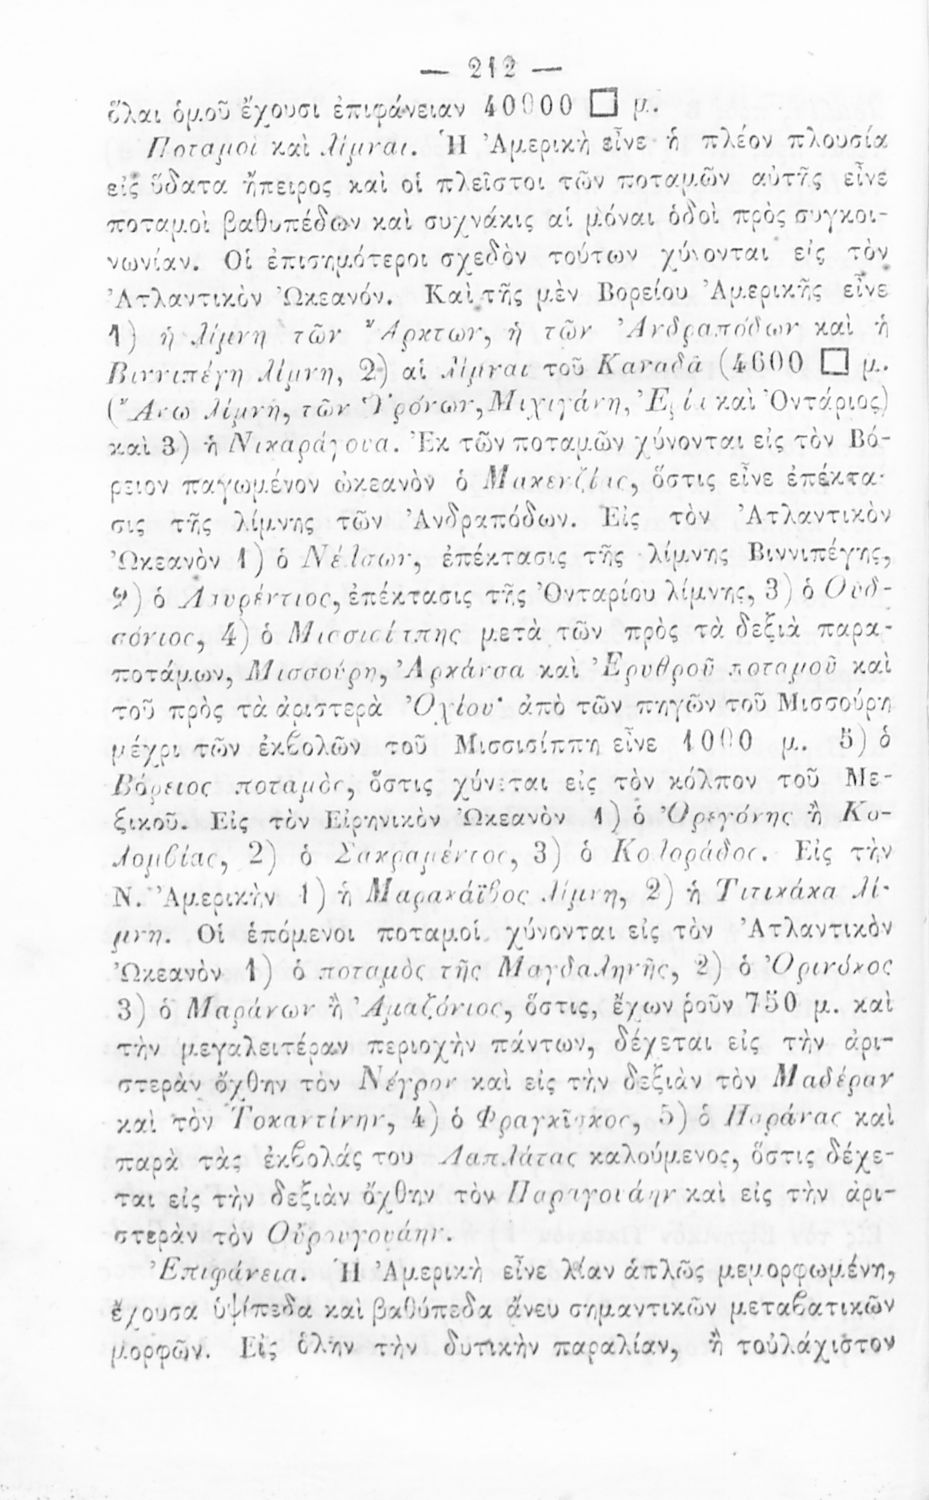 — 212 —
ὅλαι ὁμοῦ ἔχουσι ἐπιφάνειαν 40000 □ μ.
Ποταμοὶ καὶ λίμναι. Ἡ Ἀμερικὴ εἶνε ἡ πλέον πλουσία
εἰς ὕδατα ἤπειρος καὶ οἱ πλεῖστοι τῶν ποταμῶν αὐτῆς εἶνε
ποταμοὶ βαθυπέδων καὶ συχνάκις αἱ μόναι ὁδοὶ πρὸς συγκοι-
νωνίαν. Οἱ ἐπισημότεροι σχεδὸν τούτων χύνονται εἰς τὸν
Ἀτλαντικὸν Ὠκεανόν. Καὶ τῆς μὲν Βορείου Ἀμερικῆς εἶνε
1) ἡ λίμνη τῶν Ἄρκτων, ἡ τῶν Ἀνδραπόδων καὶ ἡ
Βιννιπέγη λίμνη, 2) αἱ λίμναι τοῦ Καναδᾶ (4600 □ μ.
(Ἄνω λίμνη, τῶν Ὑρόνων, Μιχιγάνη, Ἐρίι καὶ Ὀντάριος)
καὶ 3) ἡ Νικαράγουα. Ἐκ τῶν ποταμῶν χύνονται εἰς τὸν Βό-
ρειον παγωμένον ὠκεανὸν ὁ Μακενζίις, ὅστις εἶνε ἐπέκτα-
σις τῆς λίμνης τῶν Ἀνδραπόδων. Εἰς τὸν Ἀτλαντικὸν
Ὠκεανὸν 1) ὁ Νέλσων, ἐπέκτασις τῆς λίμνης Βιννιπέγης,
2) ὁ Λαυρέντιος, ἐπέκτασις τῆς Ὀνταρίου λίμνης, 3) ὁ Οὐδ-
σόνιος, 4) ὁ Μισσισίππης μετὰ τῶν πρὸς τὰ δεξιὰ παρα-
ποτάμων, Μισσούρη, Ἀρκάνσα καὶ Ἐρυθροῦ ποταμοῦ καὶ
τοῦ πρὸς τὰ ἀριστερὰ Ὀχίου· ἀπὸ τῶν πηγῶν τοῦ Μισσούρη
μέχρι τῶν ἐκβολῶν τοῦ Μισσισίππη εἶνε 1000 μ. 5) ὁ
Βόρειος ποταμὸς, ὅστις χύνεται εἰς τὸν κόλπον τοῦ Με-
ξικοῦ. Εἰς τὸν Εἰρηνικὸν Ὠκεανὸν 1) ὁ Ὀρεγόνης ἢ Κο-
λομβίας, 2) ὁ Σακραμέντος, 3) ὁ Κολοράδος. Εἰς τὴν
Ν. Ἀμερικὴν 1) ἡ Μαρακάϊβος λίμνη, 2) ἡ Τιτικάκα λί-
μνη. Οἱ ἑπόμενοι ποταμοὶ χύνονται εἰς τὸν Ἀτλαντικὸν
Ὠκεανὸν 1) ὁ ποταμὸς τῆς Μαγδαληνῆς, 2) ὁ Ὀρινόκος
3) ὁ Μαράνων ἢ Ἀμαζόνιος, ὅστις, ἔχων ῥοῦν 750 μ. καὶ
τὴν μεγαλειτέραν περιοχὴν πάντων, δέχεται εἰς τὴν ἀρι-
στερὰν ὄχθην τὸν Νέγρον καὶ εἰς τὴν δεξιὰν τὸν Μαδέραν
καὶ τὸν Τοκαντίνην, 4) ὁ Φραγκῖσκος, 5) ὁ Παράνας καὶ
παρὰ τὰς ἐκβολάς του Λαπλάτας καλούμενος, ὅστις δέχε-
ται εἰς τὴν δεξιὰν ὄχθην τὸν Παραγουάην καὶ εἰς τὴν ἀρι-
στερὰν τὸν Οὐρουγουάην.
Ἐπιφάνεια. Ἡ Ἀμερικὴ εἶνε λίαν ἁπλῶς μεμορφωμένη,
ἔχουσα ὑψίπεδα καὶ βαθύπεδα ἄνευ σημαντικῶν μεταβατικῶν
μορφῶν. Εἰς ὅλην τὴν δυτικὴν παραλίαν, ἢ τοὐλάχιστον